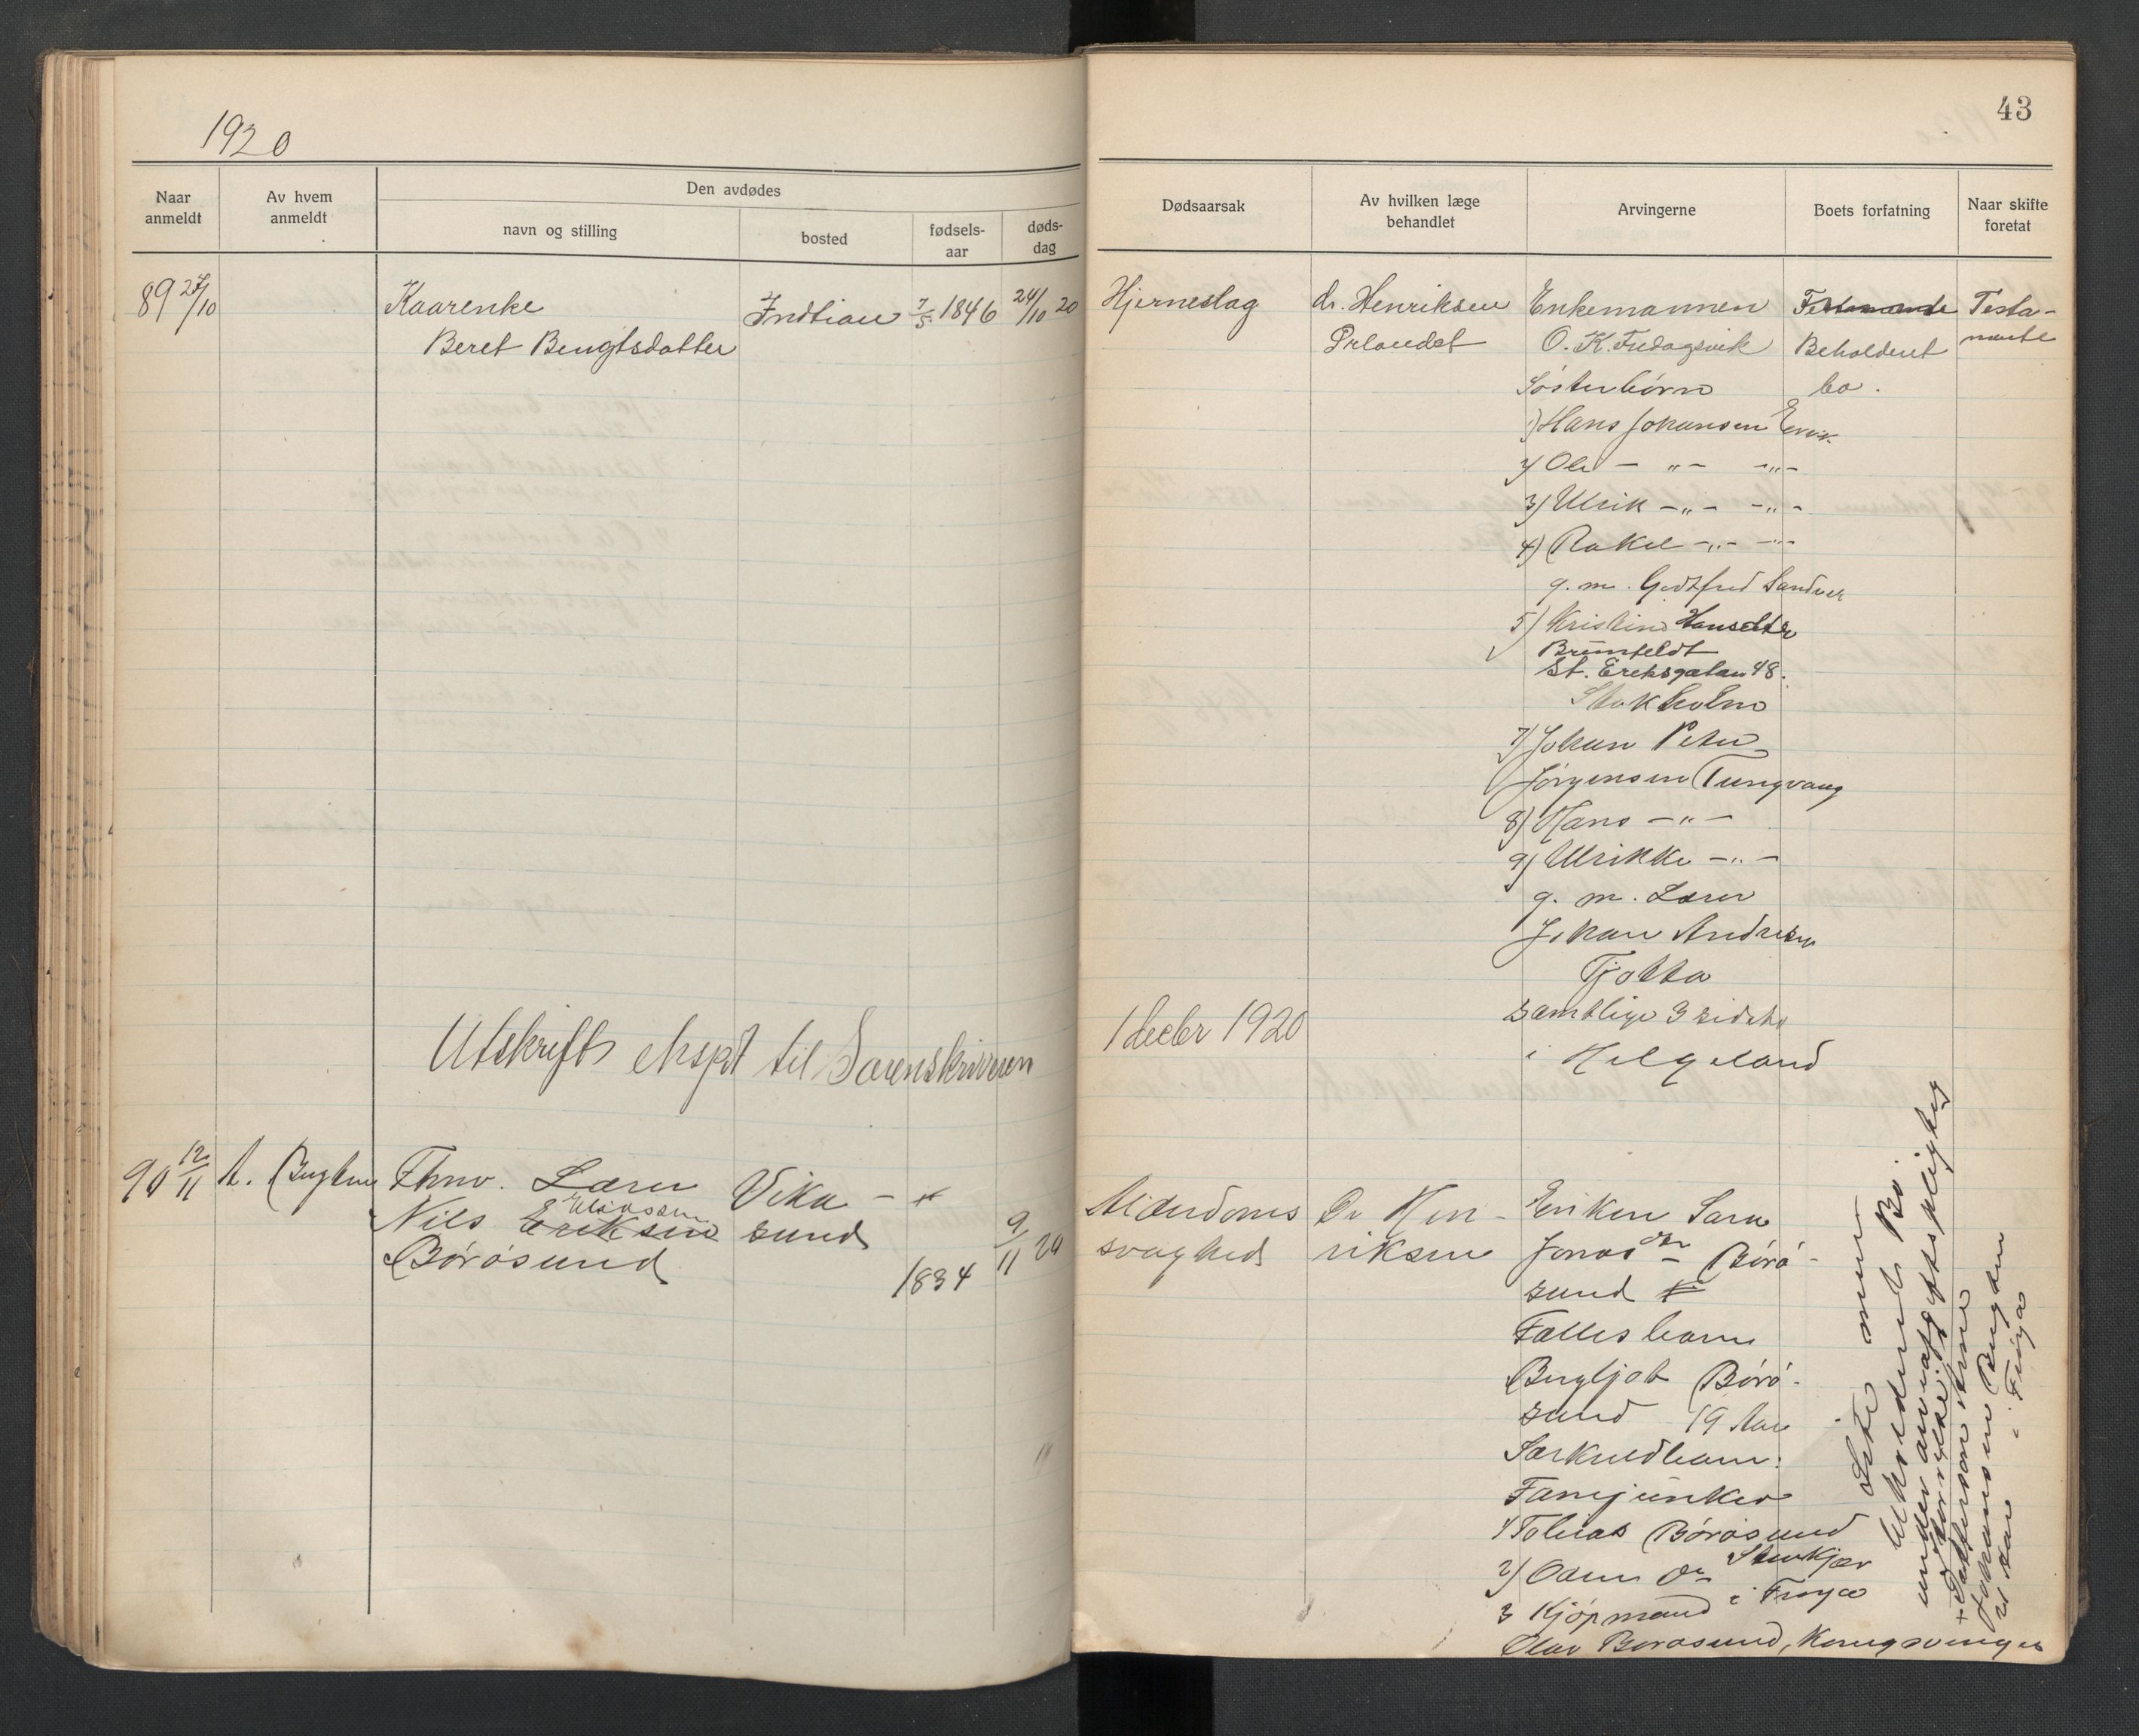 1920
43
Naar anmeldt
Av hvem anmeldt
Den avdødes
navn og stilling
bosted
fødsels-aar
døds-dag
Dødsaarsak
Av hvilken læge behandlet
Arvingerne
Boets forfatning
Naar skifte foretat
89 27/10
Kaarenke
Beret Bengtsdatter
Indtian
7/5 1846
24/10 20
Hjerneslag
dr. Henriksen
Enkemannen
O. K. Fredagsvik
Søsterbørn
1) Hans Johansen Ervik
2) Ole — " — — " —
3) Ulrik — " — — " —
4) Rakel — " — — " —
g. m. Godtfred Sandver
5) Kristine Hansdtr
Brunfeldt
St. Eriksgatan 48.
Stokholm
7) Johan Peter
Jørgensen Tungvaag
8) Hans — " —
9) Ulrikke — " —
g. m. Lærer
Johan Andresen
Tjøtta
samtlige 3 sidste
i Helgeland
Testamente
Beholdent
bo.
Testa-
mente
Utskrift ekspdt til Sorenskriveren
1 decbr 1920
90 12/11
A. Bugten
Fhnv. Lærer
Nils Eriksen
Børøsund
Vika-
sund
1834
9/11 20
Alderdoms
svaghed
Dr Hen-
riksen
Enken Sara
Jonasdtr — Børø-
sund
Fælles barn
Bergljot Børø-
sund 19 Aar
Særkuldbarn:
Fanejunker
1 Tobias Børøsund
Stenkjær
2) Odin do i Frøya
3 Kjøpmand
Olav Børøsund, Kongsvinger
Lite men
beholdent Bo
under
Johansen Bugten
i Frøya